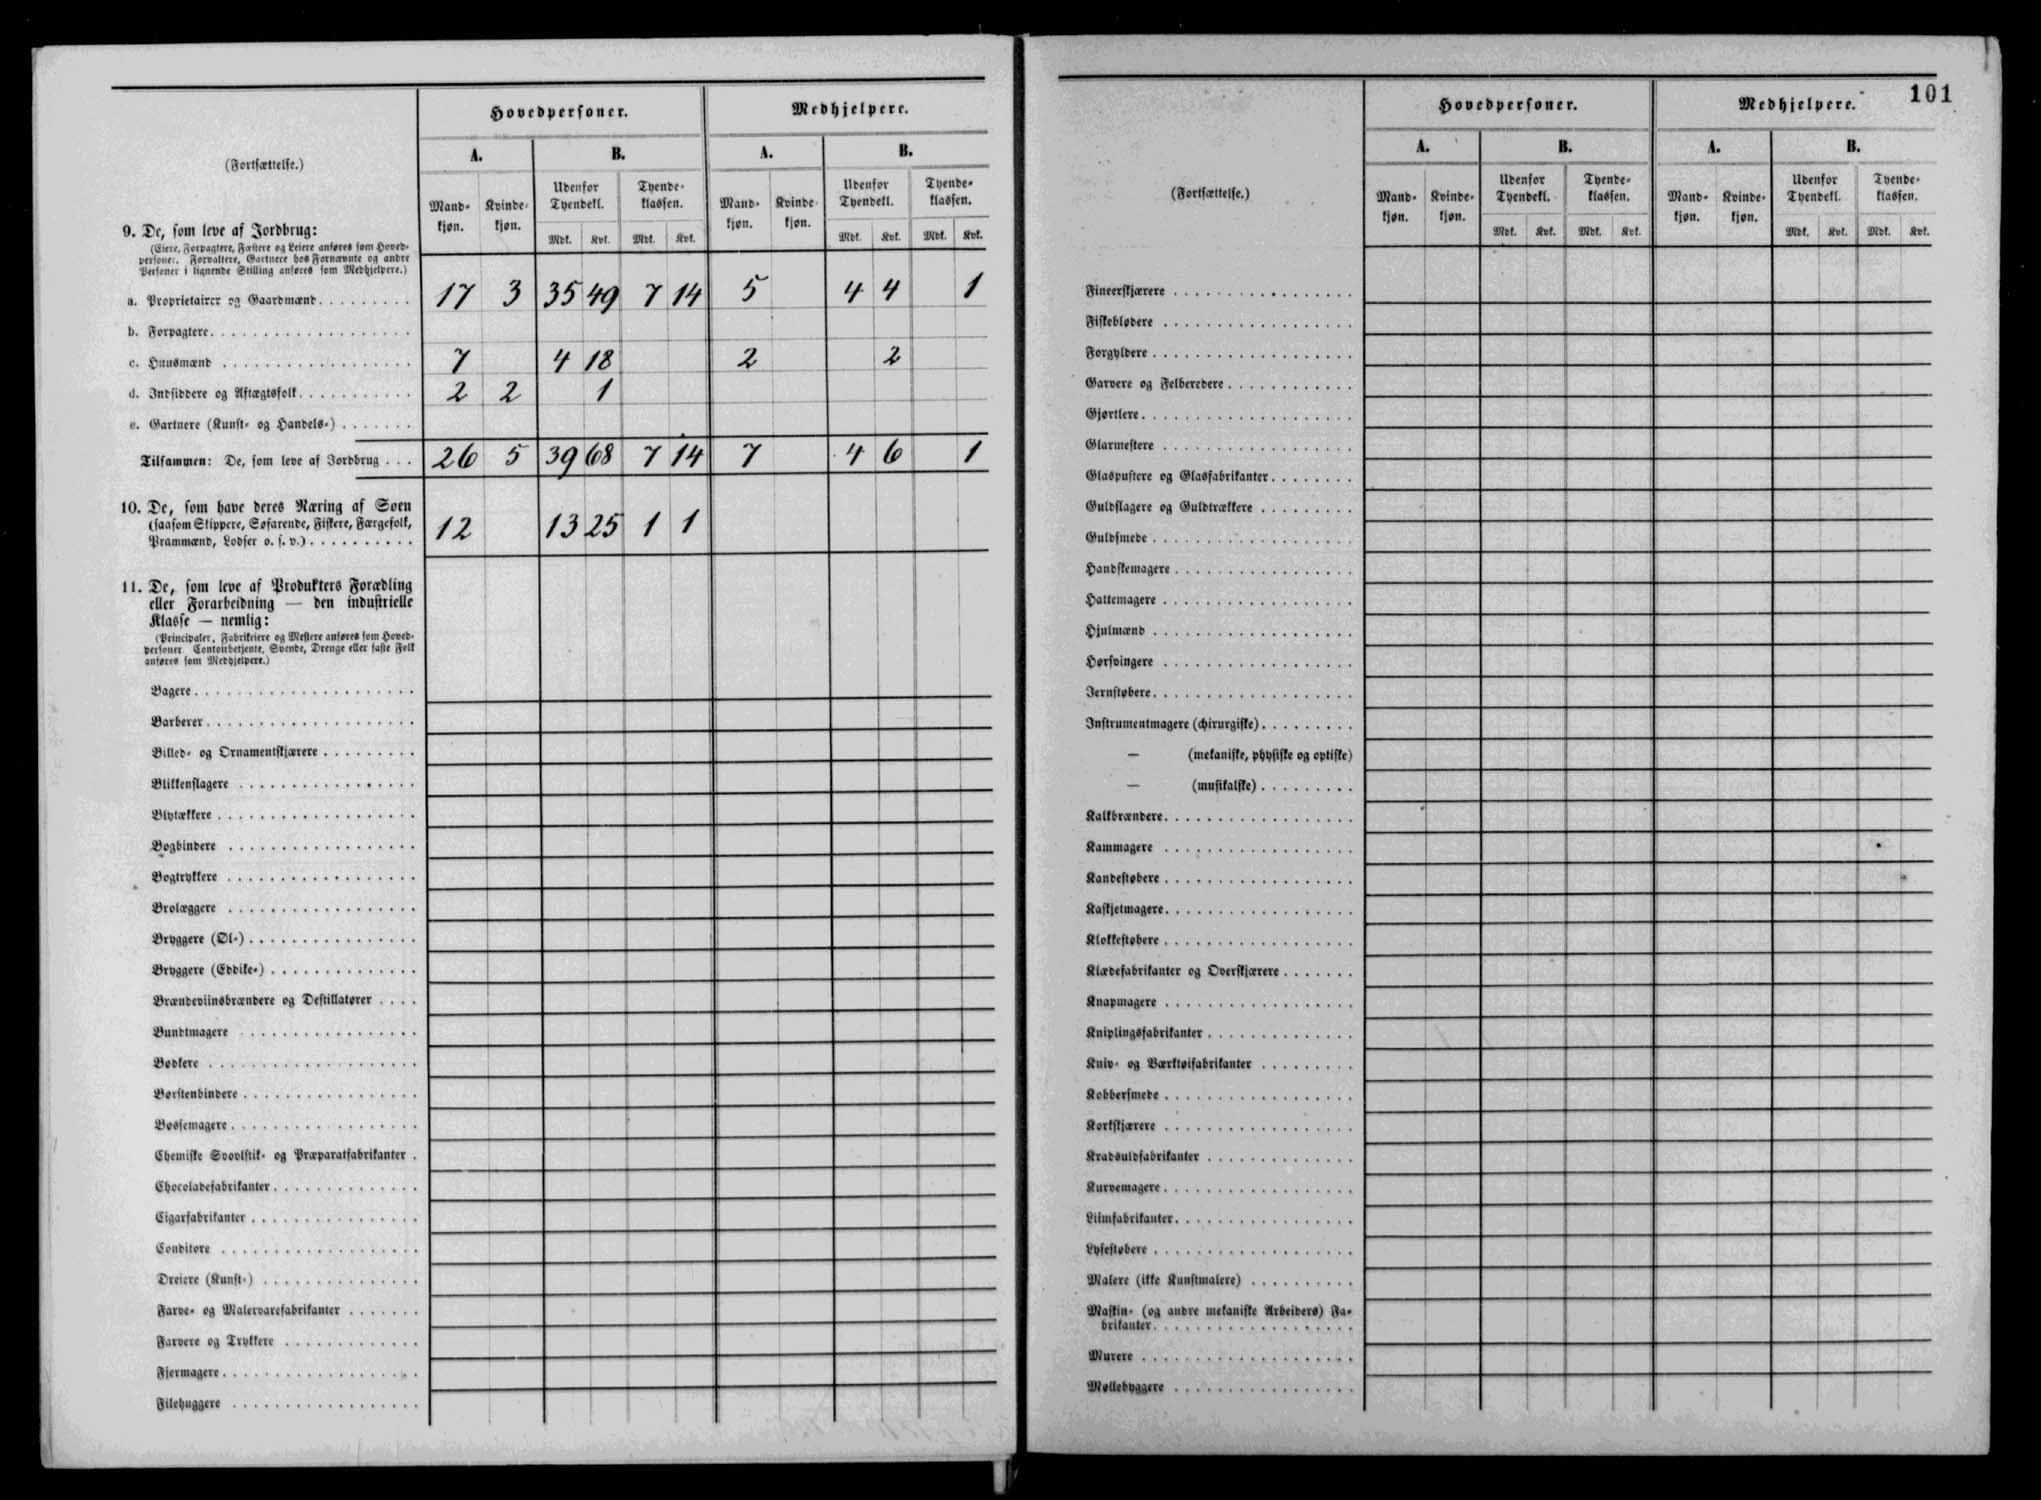 Hovedpersoner. Medhjelpere.
(Fortsættelse.)
A. B. A. B.
Mandkjøn. Kvindekjøn. Udenfor Tyendekl. Tyendeklassen. Mandkjøn. Kvindekjøn. Udenfor Tyendekl. Tyendeklassen.
Mdk. Kvk. Mdk. Kvk. Mdk. Kvk. Mdk. Kvk.
9. De, som leve af Jordbrug:
(Eiere, Forpagtere, Fæstere og Leiere anføres som Hoved-
personer. Forvaltere, Gartnere hos Fornævnte og andre
Personer i lignende Stilling anføres som Medhjelpere.)
a. Proprietairer og Gaardmænd 17 3 35 49 7 14 5 4 4 1
b. Forpagtere
c. Huusmænd 7 4 18 2 2
d. Indsiddere og Aftægtsfolk 2 2 1
e. Gartnere (Kunst- og Handels-)
Tilsammen: De, som leve af Jordbrug 26 5 39 68 7 14 7 4 6 1
10. De, som have deres Næring af Søen
(saasom Skippere, Søfarende, Fiskere, Færgefolk,
Prammænd, Lodser o. s. v.) 12 13 25 1 1
11. De, som leve af Produkters Forædling
eller Forarbeidning — den industrielle
Klasse — nemlig:
(Principaler, Fabrikeiere og Mestere anføres som Hoved-
personer. Contoirbetjente, Svende, Drenge eller faste Folk
anføres som Medhjelpere.)
Bagere
Barberer
Billed- og Ornamentskjærere
Blikkenslagere
Blytækkere
Bogbindere
Bogtrykkere
Brolæggere
Bryggere (Øl-)
Bryggere (Eddike-)
Brændeviinsbrændere og Destillatører
Bundtmagere
Bødkere
Børstenbindere
Bøssemagere
Chemiske Svovlstik- og Præparatfabrikanter
Chocoladefabrikanter
Cigarfabrikanter
Conditore
Dreiere (Kunst-)
Farve- og Malervarefabrikanter
Farvere og Trykkere
Fjermagere
Filehuggere
101
Hovedpersoner. Medhjelpere.
A. B. A. B.
(Fortsættelse.)
Mandkjøn. Kvindekjøn. Udenfor Tyendekl. Tyendeklassen. Mandkjøn. Kvindekjøn. Udenfor Tyendekl. Tyendeklassen.
Mdk. Kvk. Mdk. Kvk. Mdk. Kvk. Mdk. Kvk.
Fineerskjærere
Fiskebløдere
Forgyldere
Garvere og Felberedere
Gjørtlere
Glarmestere
Glaspustere og Glasfabrikanter
Guldslagere og Guldtrækkere
Guldsmede
Handskemagere
Hattemagere
Hjulmænd
Hørsvingere
Jernstøbere
Instrumentmagere (chirurgiske)
— (mekaniske, physiske og optiske)
— (musikalske)
Kalkbrændere
Kammagere
Kandestøbere
Kaskjetmagere
Klokkestøbere
Klædefabrikanter og Overskjærere
Knapmagere
Kniplingsfabrikanter
Kniv- og Værktøifabrikanter
Kobbersmede
Korkskjærere
Kradsuldfabrikanter
Kurvemagere
Liimfabrikanter
Lysestøbere
Malere (ikke Kunstmalere)
Maskin- (og andre mekaniske Arbeiders) Fa-
brikanter
Murere
Møllebyggere